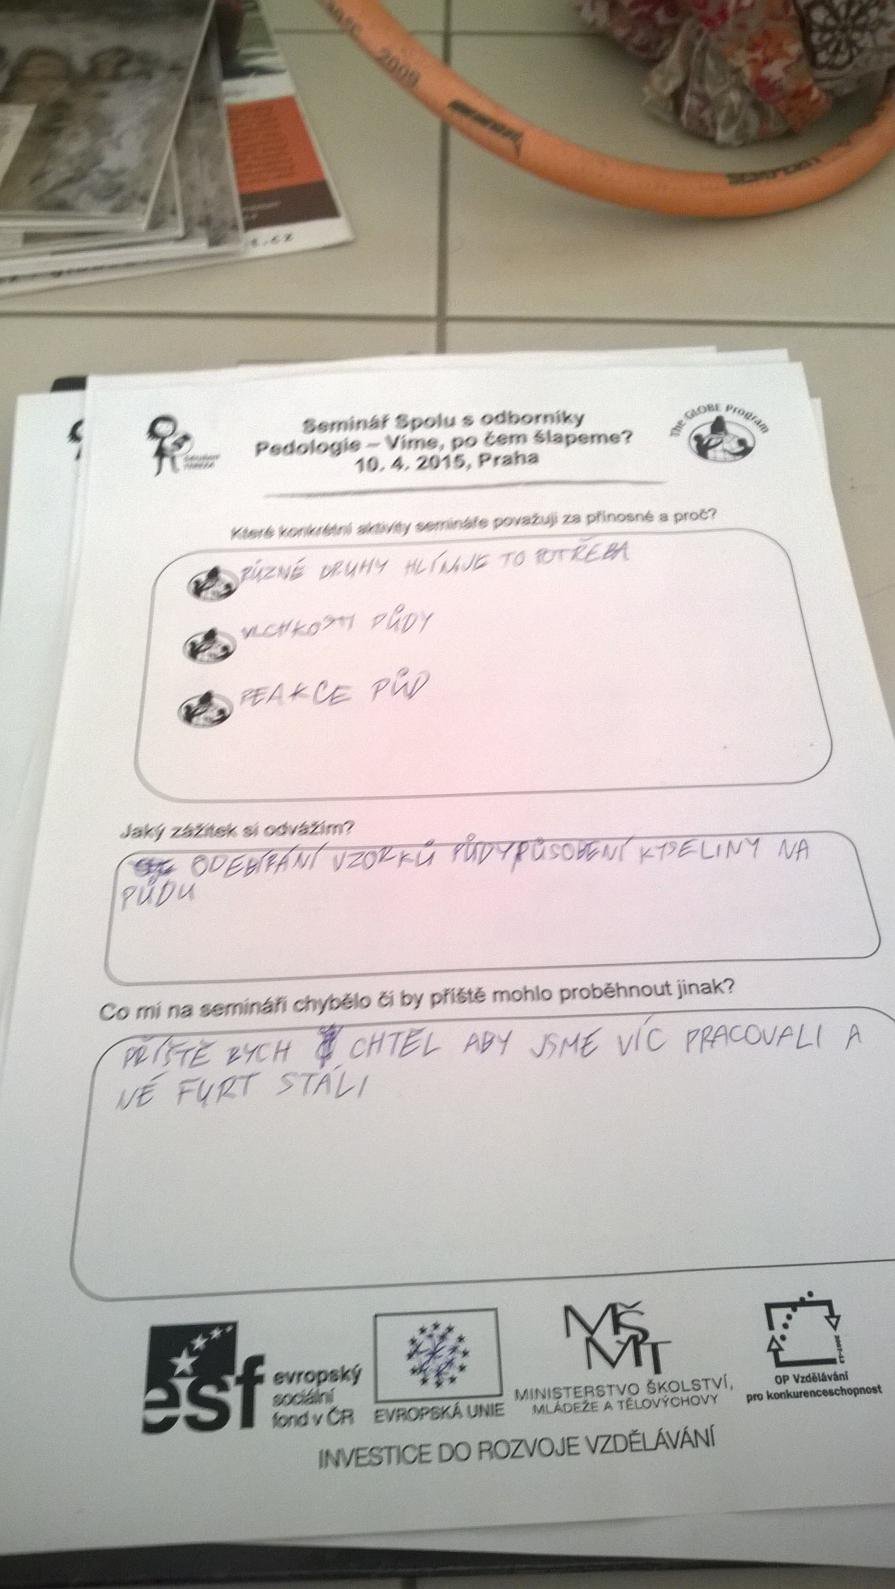 2009
SEMPERIT
t.cz
Seminář Spolu s odborníky
Pedologie – Víme, po čem šlapeme?
10. 4. 2015, Praha
The GLOBE Program
Které konkrétní aktivity semináře považuji za přínosné a proč?
RŮZNÉ DRUHY HLÍN JE TO POTŘEBA
VLHKOSTI PŮDY
REAKCE PŮD
Jaký zážitek si odvážím?
ODEBÍRÁNÍ VZORKŮ PŮDY PŮSOBENÍ KYSELINY NA
PŮDU
Co mi na semináři chybělo či by příště mohlo proběhnout jinak?
PŘÍŠTĚ BYCH CHTĚL ABY JSME VÍC PRACOVALI A
NÉ FURT STÁLI
esf
evropský
sociální
fond v ČR
EVROPSKÁ UNIE
MŠMT
MINISTERSTVO ŠKOLSTVÍ,
MLÁDEŽE A TĚLOVÝCHOVY
2007-13
OP Vzdělávání
pro konkurenceschopnost
INVESTICE DO ROZVOJE VZDĚLÁVÁNÍ